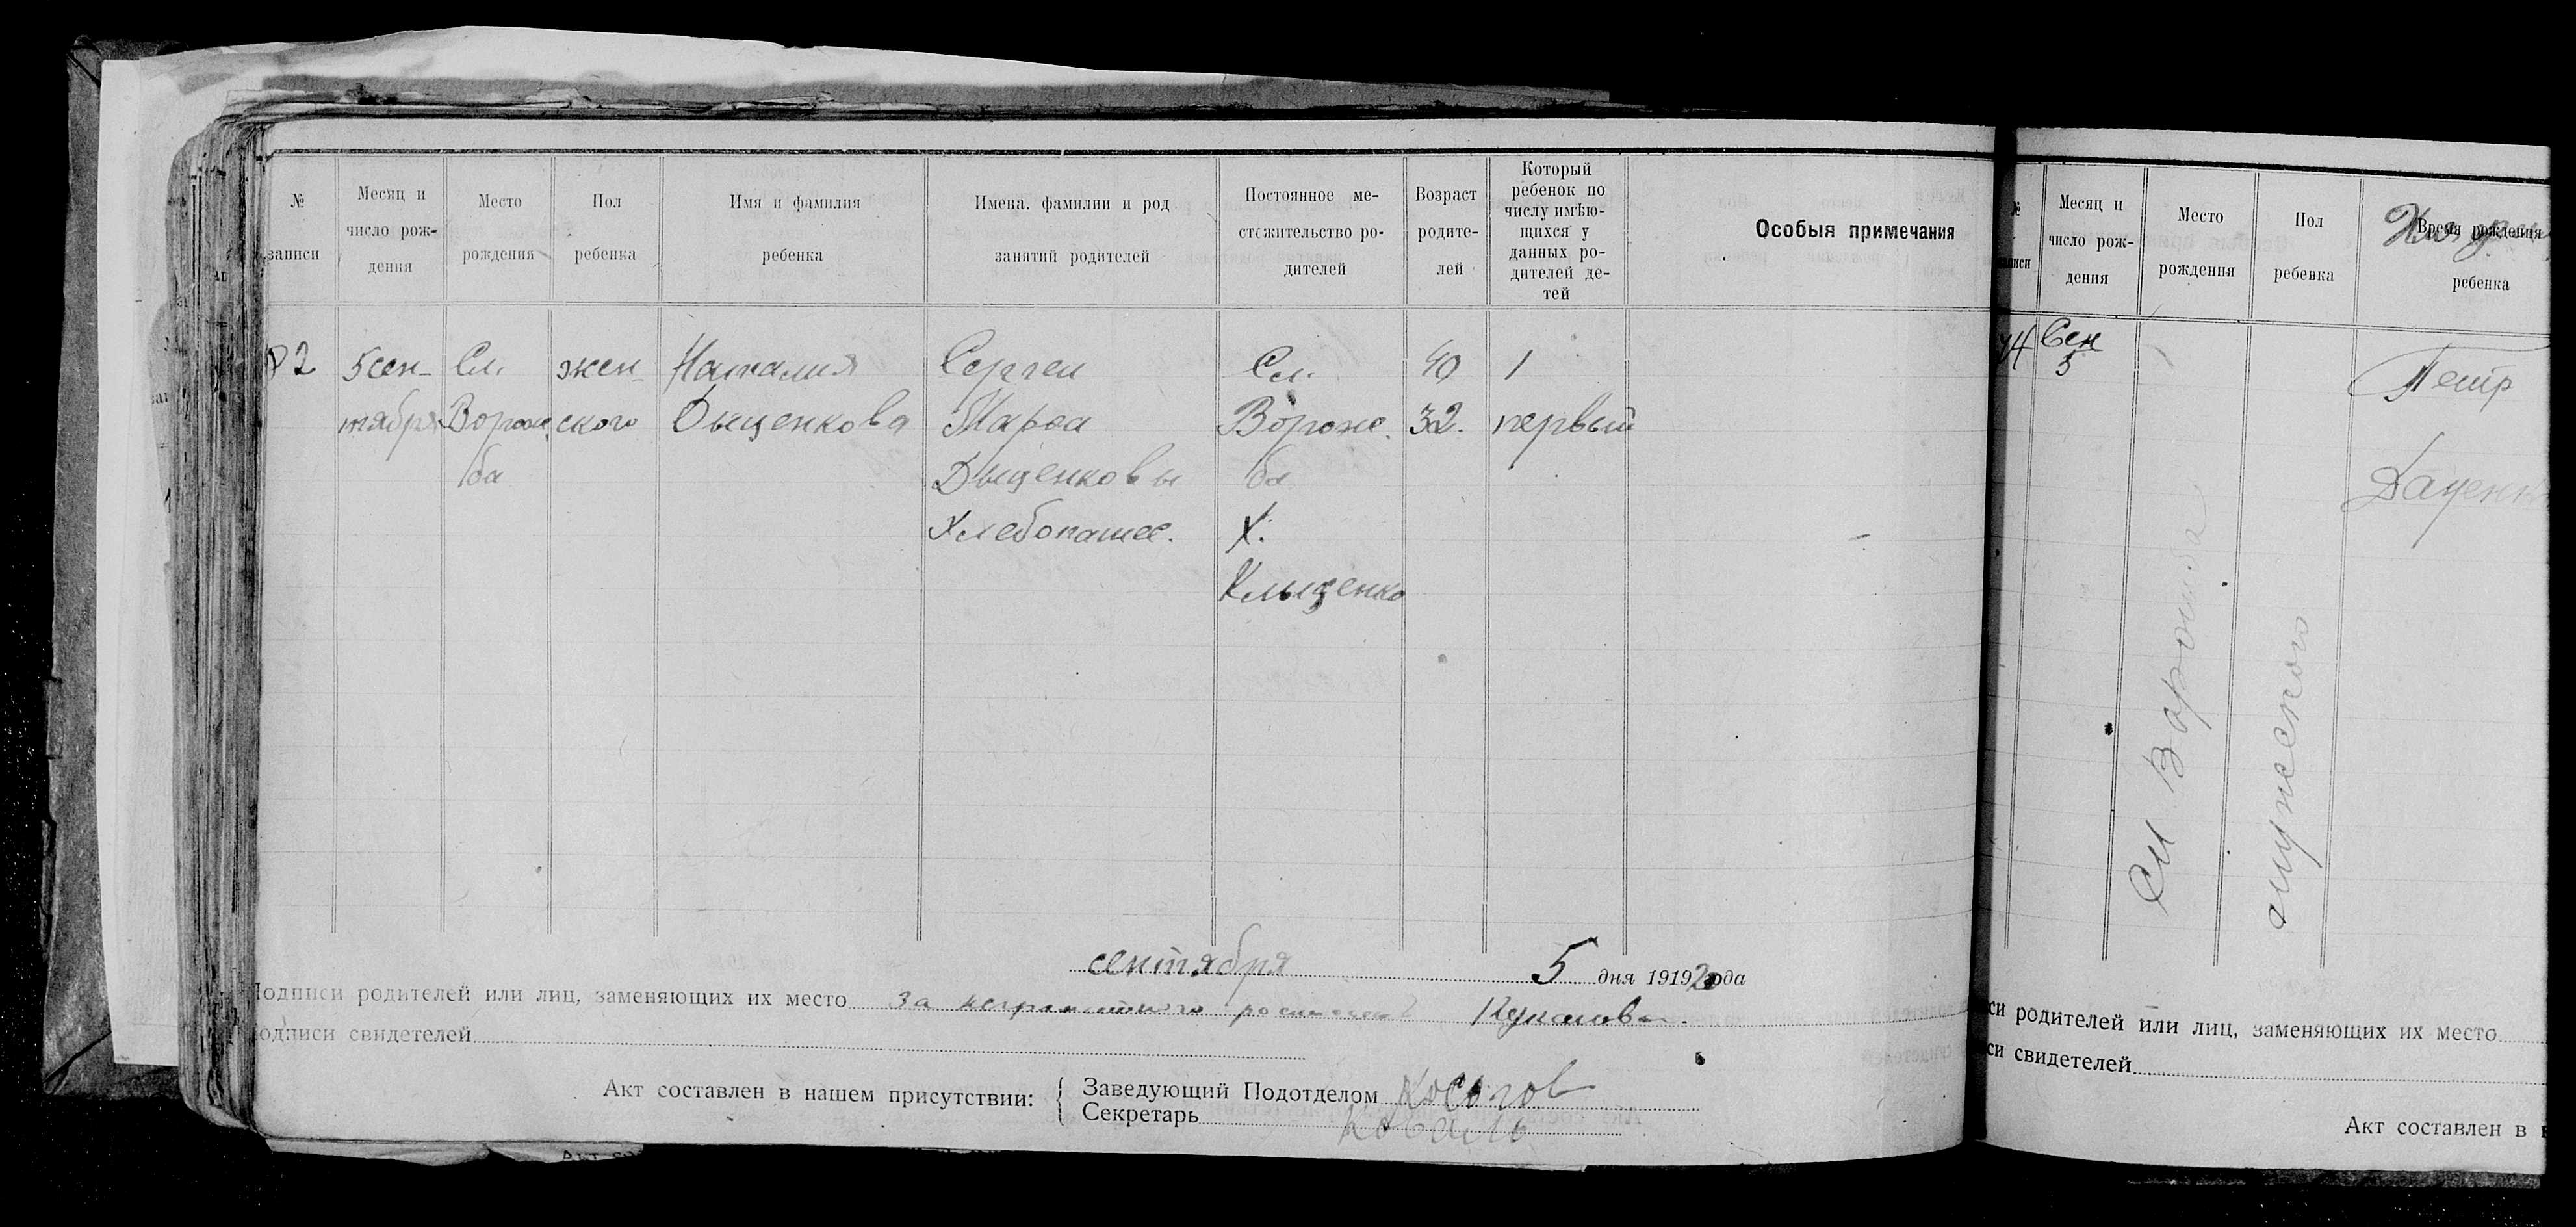 № записи
Месяц и число рож-дения
Место рождения
Пол ребенка
Имя и фамилия ребенка
Имена. фамилии и род занятий родителей
Постоянное ме-стожительство ро-дителей
Возраст родите-лей
Который ребенок по числу имѣю-щихся у данных ро-дителей де-тей
Особыя примечания
82 5 сен- Сл. жен- Наталия Сергей Сл. 40 1
тября Ворож. ского Дыщенкова Марѳа Ворож. 32. первый
ба Дыщенковы ба
Хлебопашес. Х.
Клыценко
сентября 5 дня 19192 ода
Подписи родителей или лиц, заменяющих их место за неграмотного
Подписи свидетелей
Акт составлен в нашем присутствии:
Заведующий Подотделом
Секретарь Коваль
№
Месяц и число рож-дения
Место рождения
Пол ребенка
Время рождения ребенка
Сен
5
Сл Ворожба
мужского
Петр
Даценк
си родителей или лиц, заменяющих их место
си свидетелей
Акт составлен в